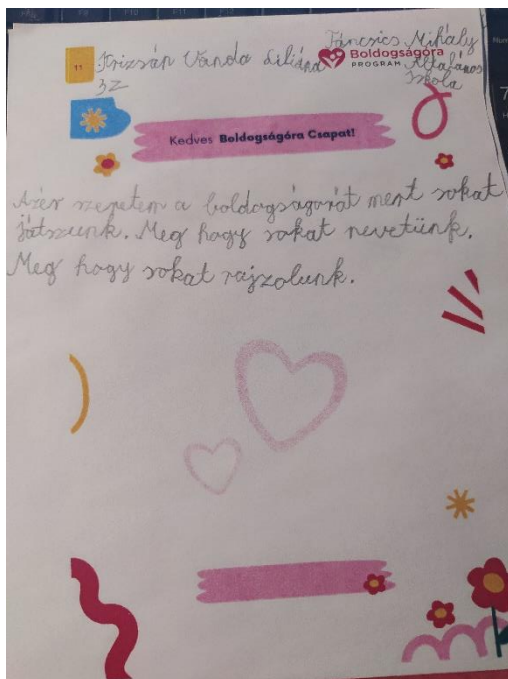 11
Krizsán Vanda Liliána
3Z
Táncsics Mihály
Általános
Iskola
Boldogságóra
PROGRAM
Kedves Boldogságóra Csapat!
Azér szeretem a boldogságorát mert sokat
játszunk. Meg hogy sokat nevetünk.
Meg hogy sokat rajzolunk.